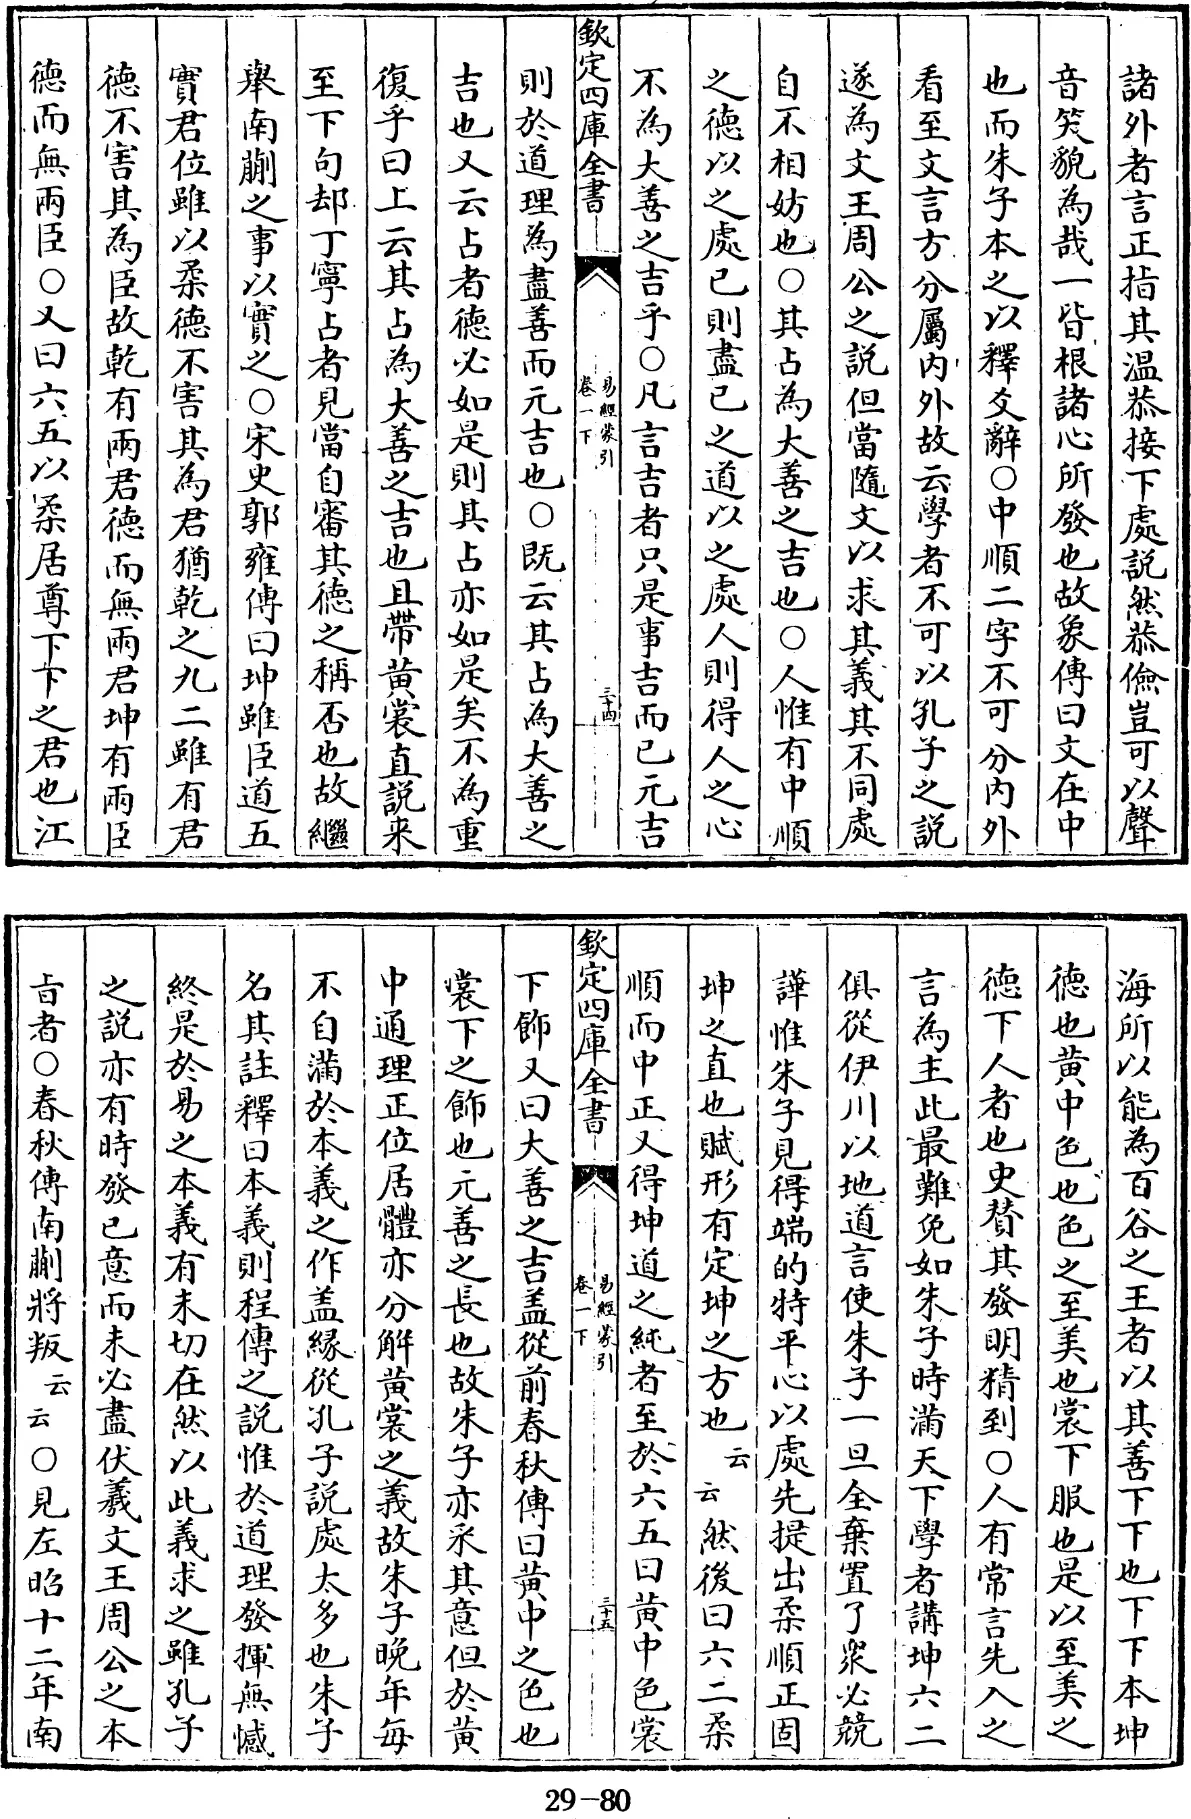 諸外者言正指其温恭接下處說然恭儉豈可以聲
音笑貌為哉一皆根諸心所發也故象傳曰文在中
也而朱子本之以釋爻辭○中順二字不可分内外
看至文言方分屬内外故云學者不可以孔子之說
遂為文王周公之說但當隨文以求其義其不同處
自不相妨也○其占為大善之吉也○人惟有中順
之德以之處已則盡已之道以之處人則得人之心
不為大善之吉乎○凡言吉者只是事吉而已元吉
欽定四庫全書
易經蒙引
卷一下
三十四
則於道理為盡善而元吉也○既云其占為大善之
吉也又云占者德必如是則其占亦如是矣不為重
復乎曰上云其占為大善之吉也且帶黄裳直説来
至下句却丁寧占者見當自審其德之稱否也故繼
舉南蒯之事以實之○宋史郭雍傳曰坤雖臣道五
實君位雖以柔德不害其為君猶乾之九二雖有君
德不害其為臣故乾有兩君德而無兩君坤有兩臣
德而無兩臣○又曰六五以柔居尊下下之君也江
海所以能為百谷之王者以其善下下也下下本坤
德也黄中色也色之至美也裳下服也是以至美之
德下人者也史賛其發明精到○人有常言先入之
言為主此最難免如朱子時滿天下學者講坤六二
俱從伊川以地道言使朱子一旦全棄置了衆必競
譁惟朱子見得端的特平心以處先提出柔順正固
坤之直也賦形有定坤之方也云云然後曰六二柔
順而中正又得坤道之純者至於六五曰黄中色裳
欽定四庫全書
易經蒙引
卷一下
三十五
下飾又曰大善之吉盖從前春秋傳曰黄中之色也
裳下之飾也元善之長也故朱子亦采其意但於黄
中通理正位居體亦分解黄裳之義故朱子晚年每
不自滿於本義之作盖緣從孔子説處太多也朱子
名其註釋曰本義則程傳之説惟於道理發揮無憾
終是於易之本義有未切在然以此義求之雖孔子
之説亦有時發已意而未必盡伏羲文王周公之本
㫖者○春秋傳南蒯將叛云云○見左昭十二年南
29-80